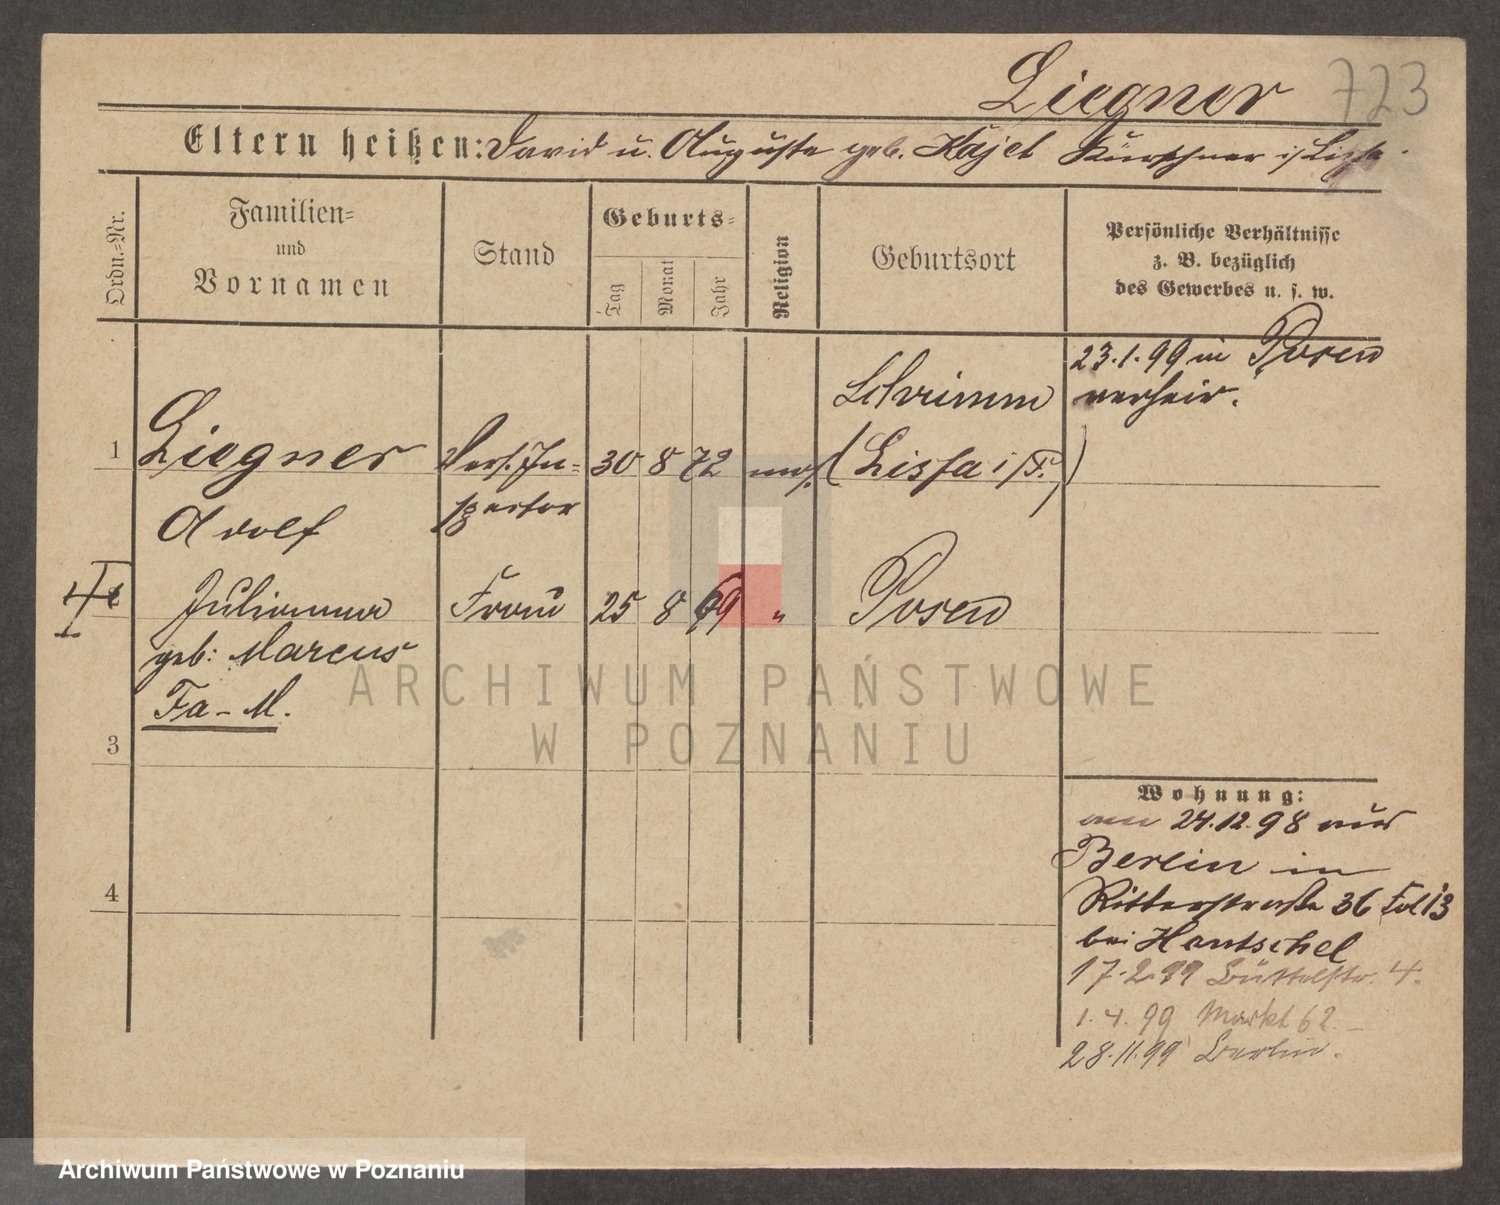 Liegner 723
Eltern heißen: David u. Auguste geb. Hajet Kürschner i/Lissa.
Ordn.-Nr.
Familien-
und
Vornamen
Stand
Geburts-
Tag
Monat
Jahr
Religion
Geburtsort
Persönliche Verhältnisse
z. B. bezüglich
des Gewerbes u. s. w.
23.1.99 in Posen
verheir.
Schrimm
1 Liegner Vers. In- 30 8 72 mos. (Lissa i/P.)
Adolf spektor
Julianna Frau 25 8 69 " Posen
geb: Marcus
Fa-M.
3
4
Wohnung:
am 24.12.98 aus
Berlin in
Ritterstraße 36 Fol 13
bei Hantschel
17.2.99 Büttelstr. 4.
1.4.99 Markt 62.
28.11.99 Berlin.
ARCHIWUM PAŃSTWOWE
W POZNANIU
Archiwum Państwowe w Poznaniu